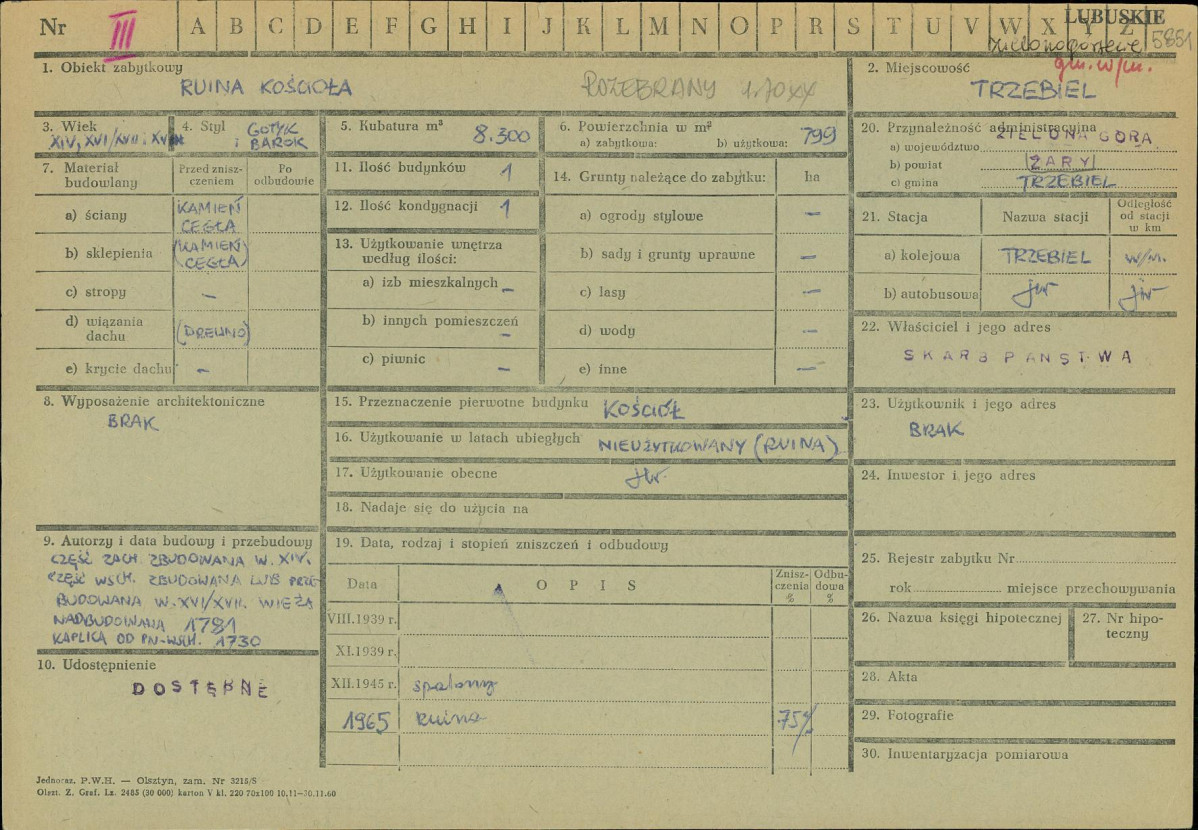 Nr III A B C D E F G H I J K L M N O P R S T U V W X Y Z
LUBUSKIE
5851
gm. w/m.
1. Obiekt zabytkowy
RUINA KOŚCIOŁA
ROZEBRANY
2. Miejscowość
TRZEBIEL
3. Wiek
XIV, XVI/XVII i XVIII
4. Styl
GOTYK
i BAROK
5. Kubatura m³
8.300
6. Powierzchnia w m²
a) zabytkowa: b) użytkowa: 799
20. Przynależność administracyjna
a) województwo ZIELONA GÓRA
b) powiat ŻARY
c) gmina TRZEBIEL
7. Materiał budowlany
Przed zniszczeniem
Po odbudowie
a) ściany KAMIEŃ
CEGŁA
b) sklepienia (KAMIEŃ
CEGŁA)
c) stropy —
d) wiązania dachu (DREWNO)
e) krycie dachu —
11. Ilość budynków 1
12. Ilość kondygnacji 1
13. Użytkowanie wnętrza
według ilości:
a) izb mieszkalnych —
b) innych pomieszczeń —
c) piwnic —
14. Grunty należące do zabytku: ha
a) ogrody stylowe —
b) sady i grunty uprawne —
c) lasy —
d) wody —
e) inne —
21. Stacja
Nazwa stacji
Odległość
od stacji
w km
a) kolejowa TRZEBIEL w/m.
b) autobusowa jw jw
22. Właściciel i jego adres
SKARB PAŃSTWA
8. Wyposażenie architektoniczne
BRAK
15. Przeznaczenie pierwotne budynku KOŚCIÓŁ
16. Użytkowanie w latach ubiegłych NIEUŻYTKOWANY (RUINA)
17. Użytkowanie obecne jw.
18. Nadaje się do użycia na
23. Użytkownik i jego adres
BRAK
24. Inwestor i jego adres
9. Autorzy i data budowy i przebudowy
CZĘŚĆ ZACH. ZBUDOWANA W. XIV.
CZĘŚĆ WSCH. ZBUDOWANA LUB PRZE-
BUDOWANA W. XVI/XVII. WIEŻA
NADBUDOWANA 1781
KAPLICA OD PN-WSCH. 1730
10. Udostępnienie
DOSTĘPNE
19. Data, rodzaj i stopień zniszczeń i odbudowy
Data
OPIS
Znisz-
czenia
%
Odbu-
dowa
%
VIII.1939 r.
XI.1939 r.
XII.1945 r. spalony
1965 ruina 75%
25. Rejestr zabytku Nr
rok miejsce przechowywania
26. Nazwa księgi hipotecznej
27. Nr hipo-
teczny
28. Akta
29. Fotografie
30. Inwentaryzacja pomiarowa
Jednoraz. P.W.H. — Olsztyn, zam. Nr 3215/S
Olszt. Z. Graf. Lz. 2485 (30 000) karton V kl. 220 70x100 10.11-30.11.60